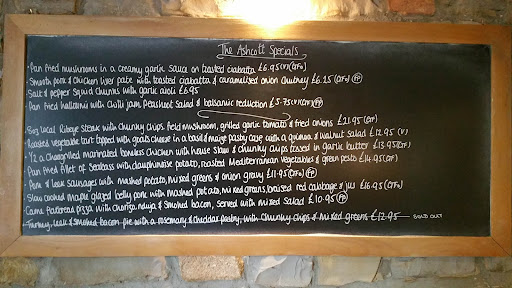 The Ashcott Specials
Pan fried mushrooms in a creamy garlic sauce on toasted ciabatta £6.95 (V)(GFO)
Smooth pork & chicken liver pate with toasted ciabatta & caramelised onion chutney £6.25 (GFO) (PP)
Salt & pepper squid chunks with garlic aioli £6.95
Pan fried halloumi with chilli jam, peashoot salad & balsamic reduction £5.75 (V)(GF)(PP)
8oz local Ribeye steak with chunky chips, field mushroom, grilled garlic tomato & fried onions £21.95 (GF)
Roasted vegetable tart topped with goats cheese in a basil & maize pastry case with a quinoa & walnut salad £12.95 (V)
1/2 a Chargrilled marinated boneless chicken with house slaw & chunky chips tossed in garlic butter £13.95 (GF)
Pan fried fillet of Seabass with dauphinoise potato, roasted Mediterranean vegetables & green pesto £14.95 (GF)
Pork & leek sausages with mashed potato, mixed greens & onion gravy £11.95 (GFO) (PP)
Slow cooked maple glazed belly pork with mashed potato, mixed greens, braised red cabbage & jus £16.95 (GFO)
flatbread pizza with chorizo, nduja & smoked bacon, served with mixed salad £10.95 (PP)
Turkey, leek & smoked bacon pie with a rosemary & cheddar pastry, with chunky chips & mixed greens £12.95 SOLD OUT